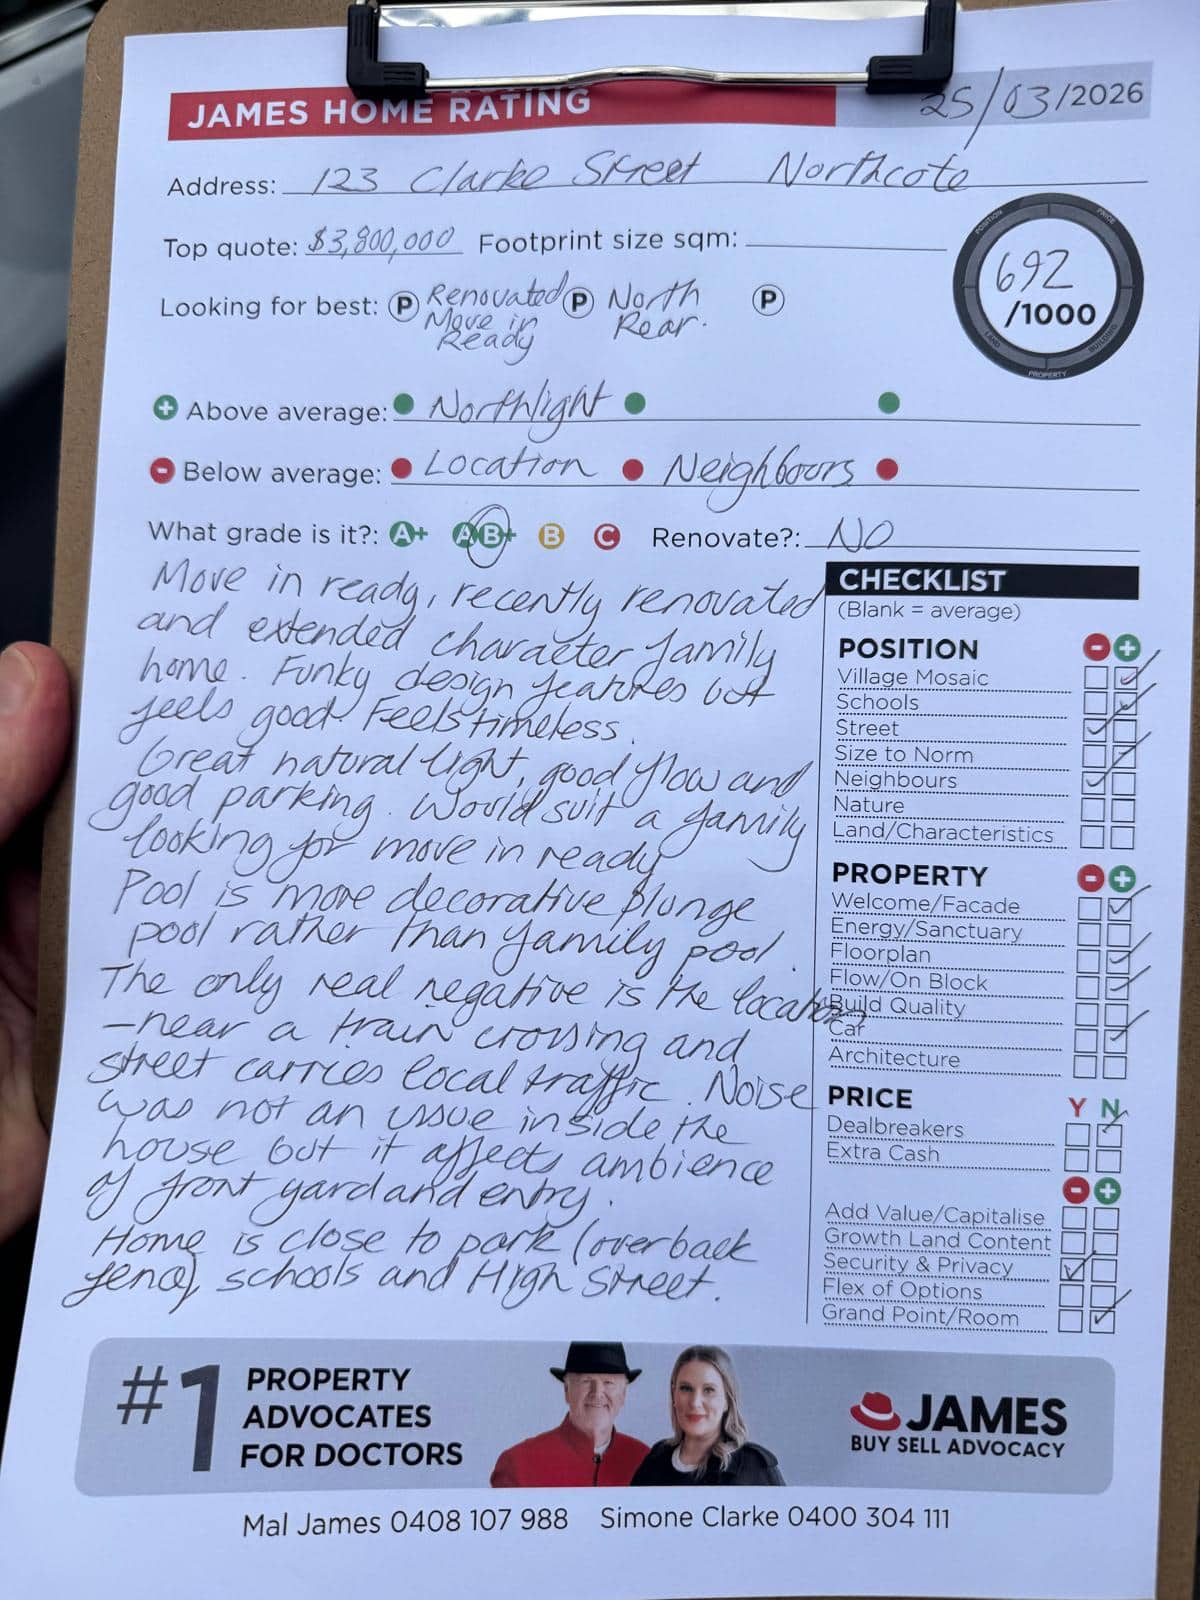 JAMES HOME RATING 25/03/2026
Address: 123 Clarke Street Northcote
Top quote: $3,800,000 Footprint size sqm:
692
/1000
POSITION PRICE BUILDING PROPERTY LAND
Looking for best: P Renovated Move in Ready P North Rear. P
+ Above average: Northlight
- Below average: Location Neighbours
What grade is it?: A+ A B+ B C Renovate?: NO
Move in ready, recently renovated
and extended character family
home. Funky design features but
feels good. Feels timeless.
Great natural light, good flow and
good parking. Would suit a family
looking for move in ready
Pool is more decorative plunge
pool rather than family pool.
The only real negative is the location
- near a train crossing and
street carries local traffic. Noise
was not an issue inside the
house but it affects ambience
of front yard and entry.
Home is close to park (over back
fence), schools and High Street.
CHECKLIST
(Blank = average)
POSITION - +
Village Mosaic
Schools
Street
Size to Norm
Neighbours
Nature
Land/Characteristics
PROPERTY - +
Welcome/Facade
Energy/Sanctuary
Floorplan
Flow/On Block
Build Quality
Car
Architecture
PRICE Y N
Dealbreakers
Extra Cash
- +
Add Value/Capitalise
Growth Land Content
Security & Privacy
Flex of Options
Grand Point/Room
#1 PROPERTY
ADVOCATES
FOR DOCTORS
JAMES
BUY SELL ADVOCACY
Mal James 0408 107 988 Simone Clarke 0400 304 111